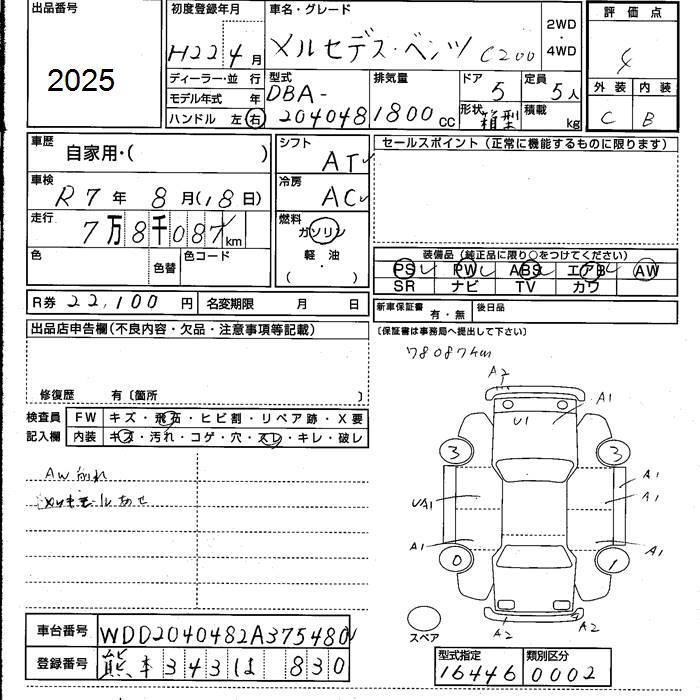 出品番号
2025
初度登録年月
H22 4月
車名・グレード
メルセデス・ベンツ C200
2WD
・
4WD
評価点
4
外装 内装
C B
ディーラー・並行
モデル年式 年
ハンドル 左 右
型式
DBA-
204048
排気量
1800cc
ドア
5
定員
5人
形状
箱型
積載
kg
車歴
自家用・( )
車検
R7年 8月(18日)
走行
7万8千087km
色
色替
色コード
シフト
AT
冷房
AC
燃料
ガソリン
軽・油
( )
セールスポイント(正常に機能するものに限ります)
装備品(純正品に限り○をつけてください)
PS PW ABS エアB AW
SR ナビ TV カワ
R券 22,100円
名変期限 月 日
新車保証書 有・無
後日品
(保証書は事務局へ提出して下さい)
出品店申告欄(不良内容・欠品・注意事項等記載)
修復歴 有〔箇所 〕
78087km
検査員
記入欄
FW キズ・飛石・ヒビ割・リペア跡・X要
内装 キズ・汚れ・コゲ・穴・スレ・キレ・破レ
AW
A2
A1
U1
3 3
A1
UA1
A1
A1
A1
0 1
スペア
A2
A2
車台番号 WDD2040482A375480
登録番号 熊本 343 は 830
型式指定
16446
類別区分
0002